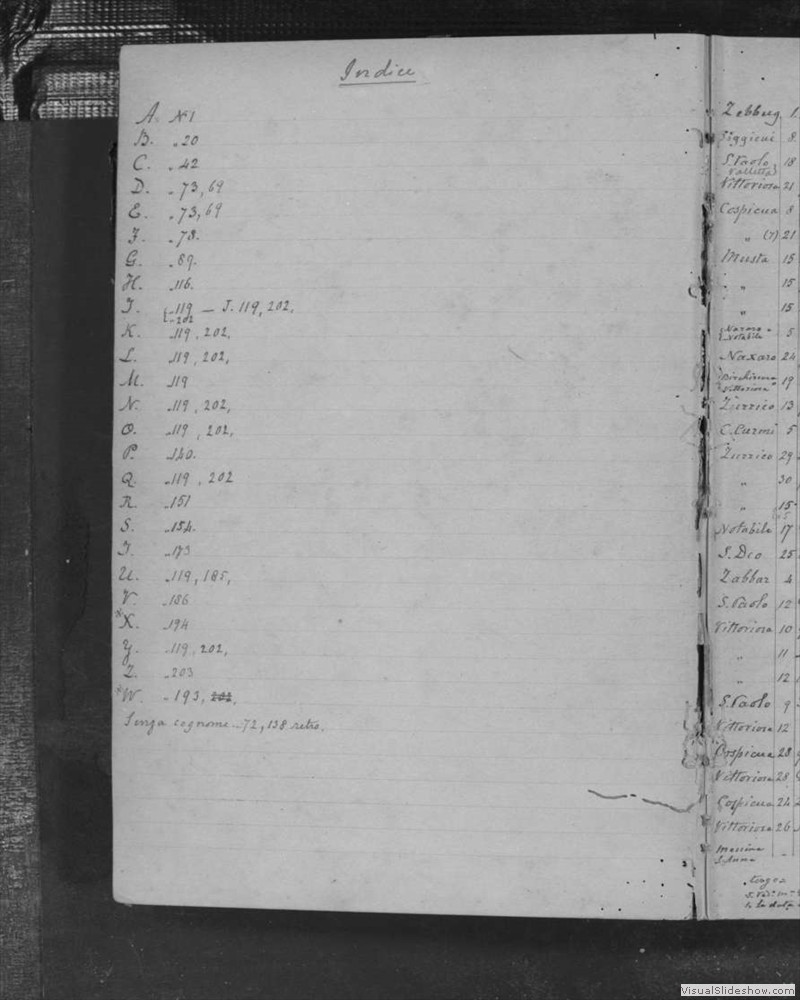 Indice
A. Nº 1
B. „ 20
C. „ 42
D. „ 73, 69
E. „ 73, 69
F. „ 78.
G. „ 89.
H. „ 116.
I. „ 119 — J. 119, 202,
„ 202
K. „ 119, 202,
L. „ 119, 202,
M. „ 119
N. „ 119, 202,
O. „ 119, 202,
P. „ 140.
Q. „ 119, 202
R. „ 151
S. „ 154.
T. „ 173
U. „ 119, 185,
V. „ 186
*X. „ 194
Y. „ 119, 202,
Z. „ 203
*W. „ 193, 202,
Senza cognome „ 72, 138 retro.
Zebbug 1.
Siggieui 8
S. Paolo 18
Valletta
Vittoriosa 21
Cospicua 8
„ (7) 21
Musta 15
„ 15
„ 15
Notabile 5
Naxaro 24
Vittoriosa 19
Zurrico 13
C. Curmi 5
Zurrico 29
„ 30
„ 15
Notabile 17
S. Dco 25
Zabbar 4
S. Paolo 12
Vittoriosa 10
„ 11
„ 12
S. Paolo 9
Vittoriosa 12
Cospicua 28
Vittoriosa 28
Cospicua 24
Vittoriosa 26
Messina
S. Anna
VisualSlideshow.com